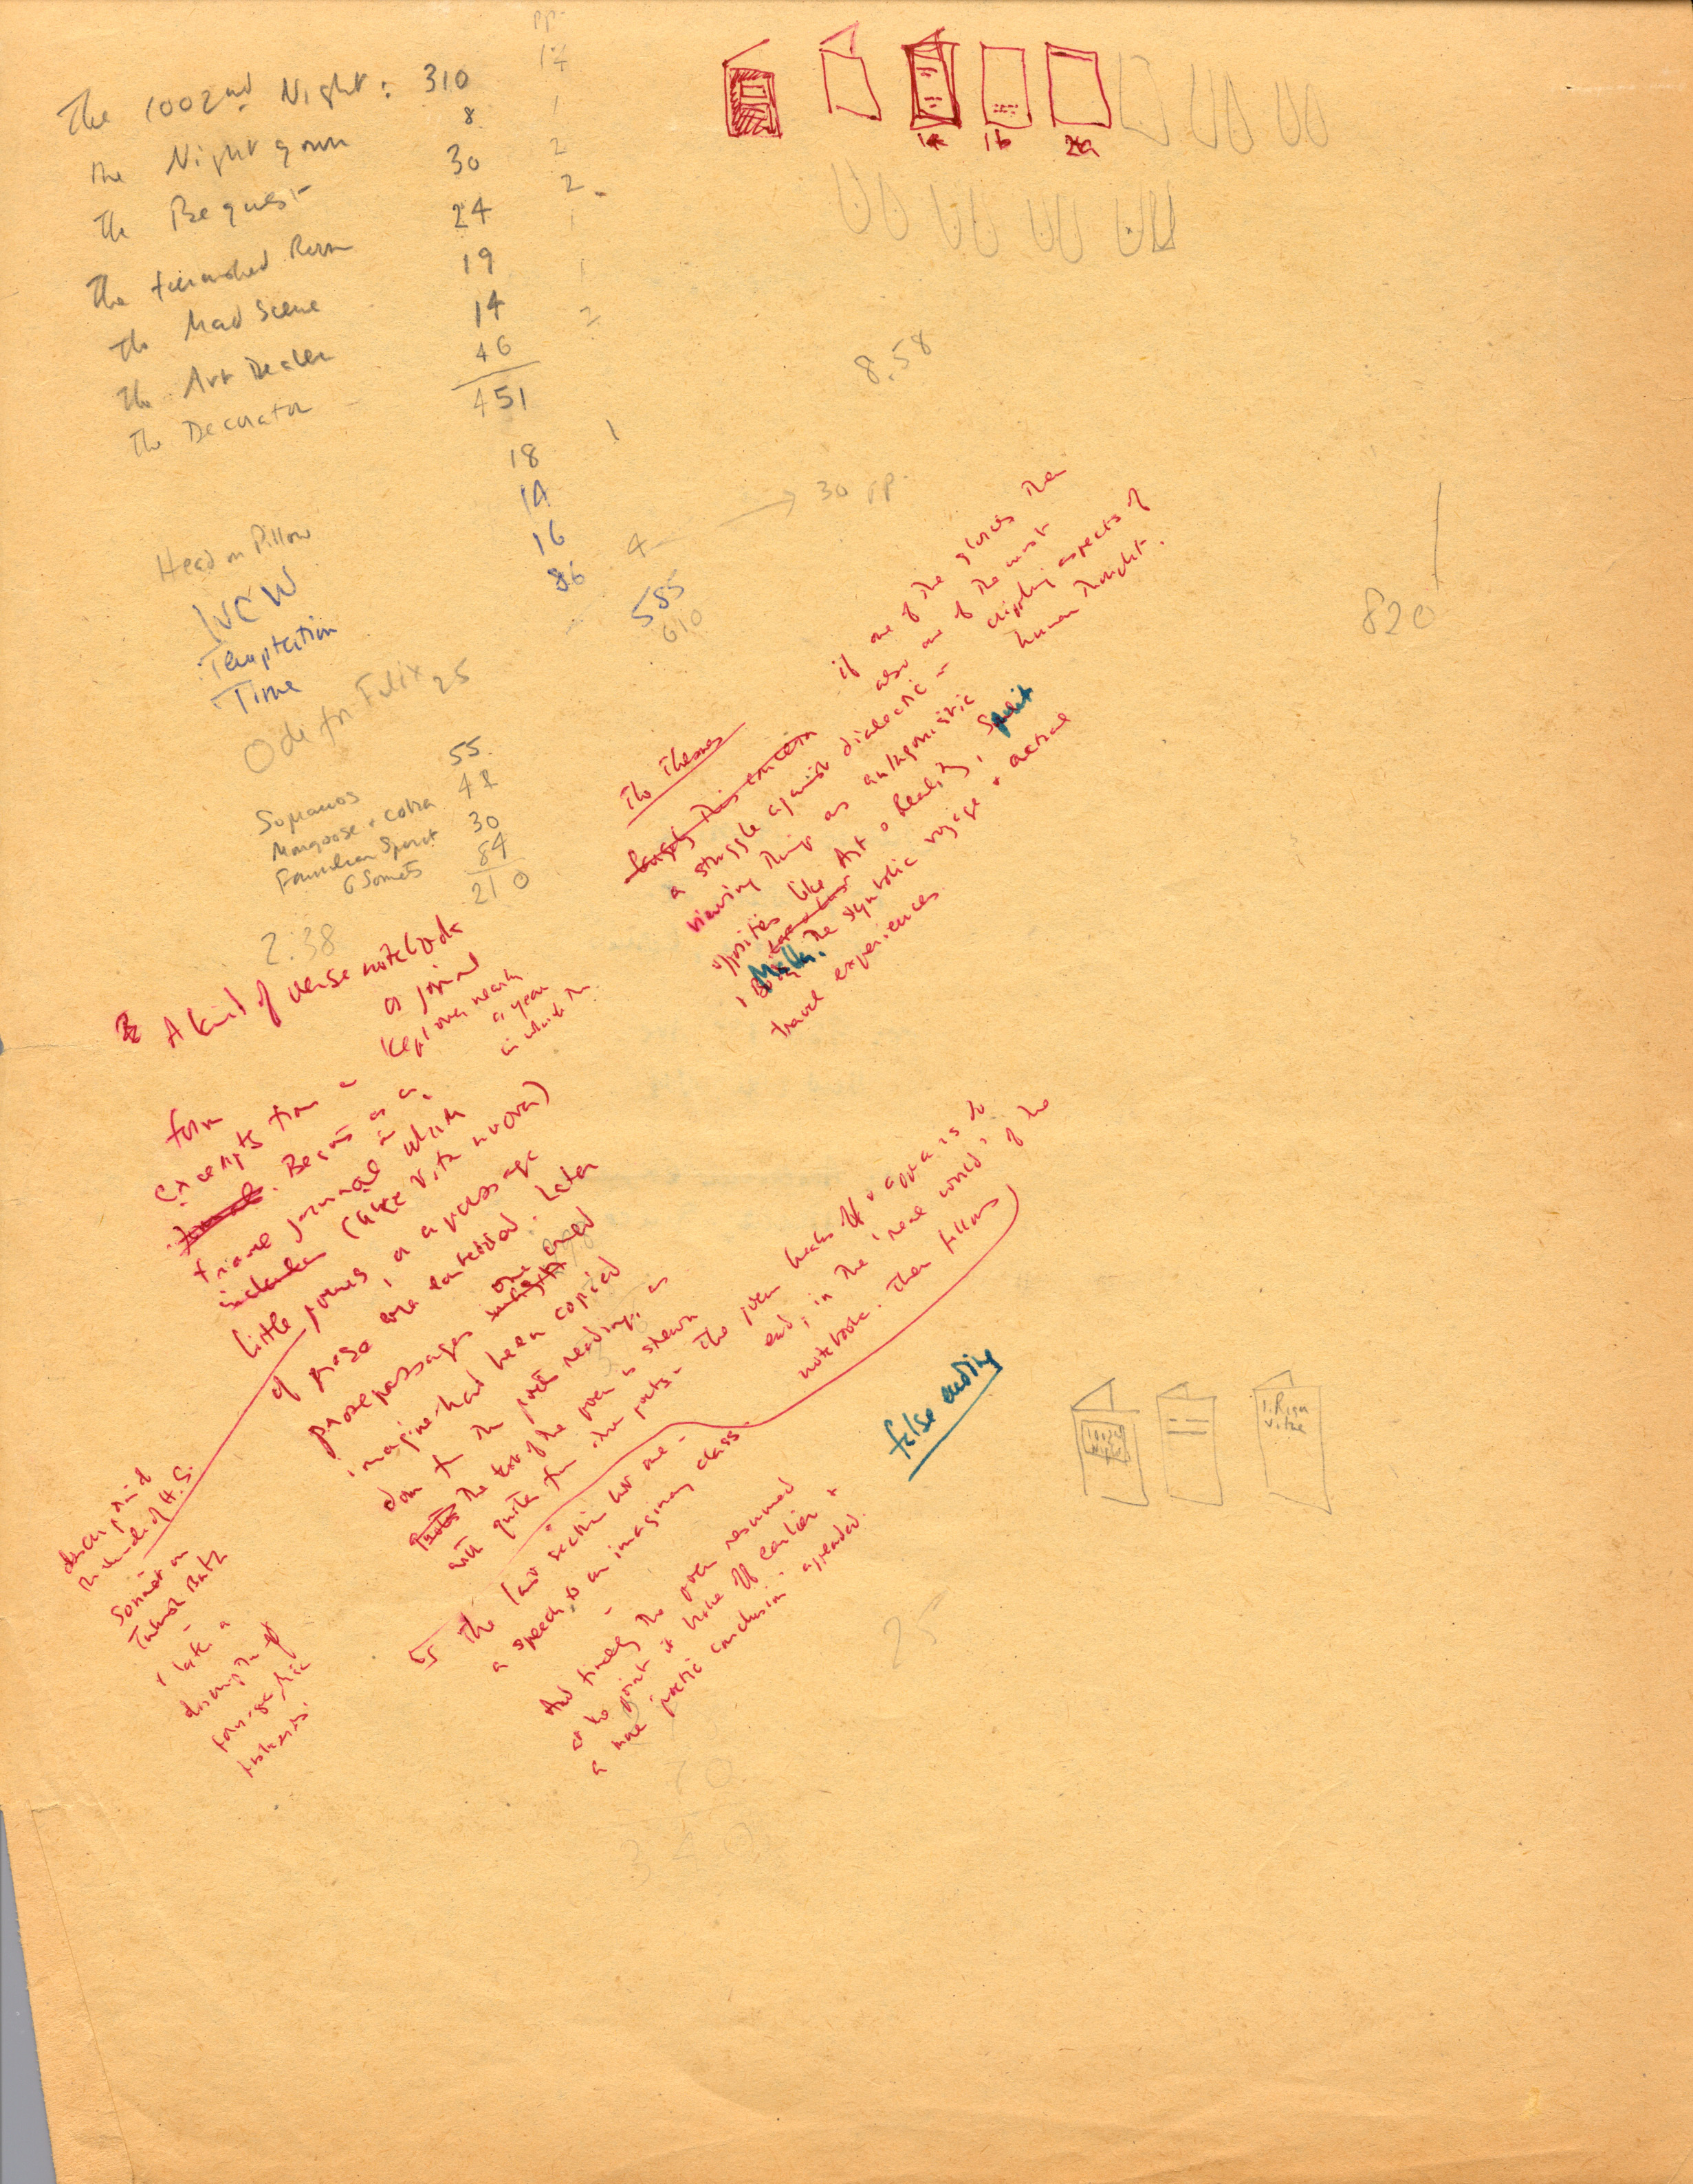 pp.
The 1002nd Night : 310 14
The Nightgown 8 1
The Bequest 30 2
The furnished Room 24 2
The Mad Scene 19 1
The Art Dealer 14 1
The Decorator 46 2
451
Head on Pillow 18 1
IVCW 14
Temptation 16
Time 86 4 → 30 pp.
585
610
Ode for Felix 25
Sopranos 55
Mongoose + Cobra 42
Foundling Spirit 30
6 Sonnets 84
210
2:38
1a 1b 2a
8.58
820
The Themes
if one of the glories then
also one of the most
crippling aspects of
human thought.
a struggle against dialectic –
viewing things as antagonistic
opposites like Art & Reality, Spirit
Matter. The symbolic voyage & actual
travel experiences.
A kind of verse notebook
or journal
kept over nearly
a year
in which the
form
excerpts from a
journal. Begins as a
frame journal in which
(like Vita nuova)
little poems, or a passage
of prose are embedded. Later
prose passages one
imagine had been copied
down from the poet's reading, as
the text of the poem is shown
not quite the poet's – the poem breaks off & appears to
end, in the 'real world' of the
notebook. Then follows
The last section but one –
a speech to an imaginary class.
And finally the poem resumed
at the point it broke off earlier &
a more poetic conclusion appended.
false ending
description of
the hands of H.S.
Sonnet on
Turkish Bath
& later a
description of
pornographic
postcards
1002nd
Night
1. Rigor
vitae
25
70
340